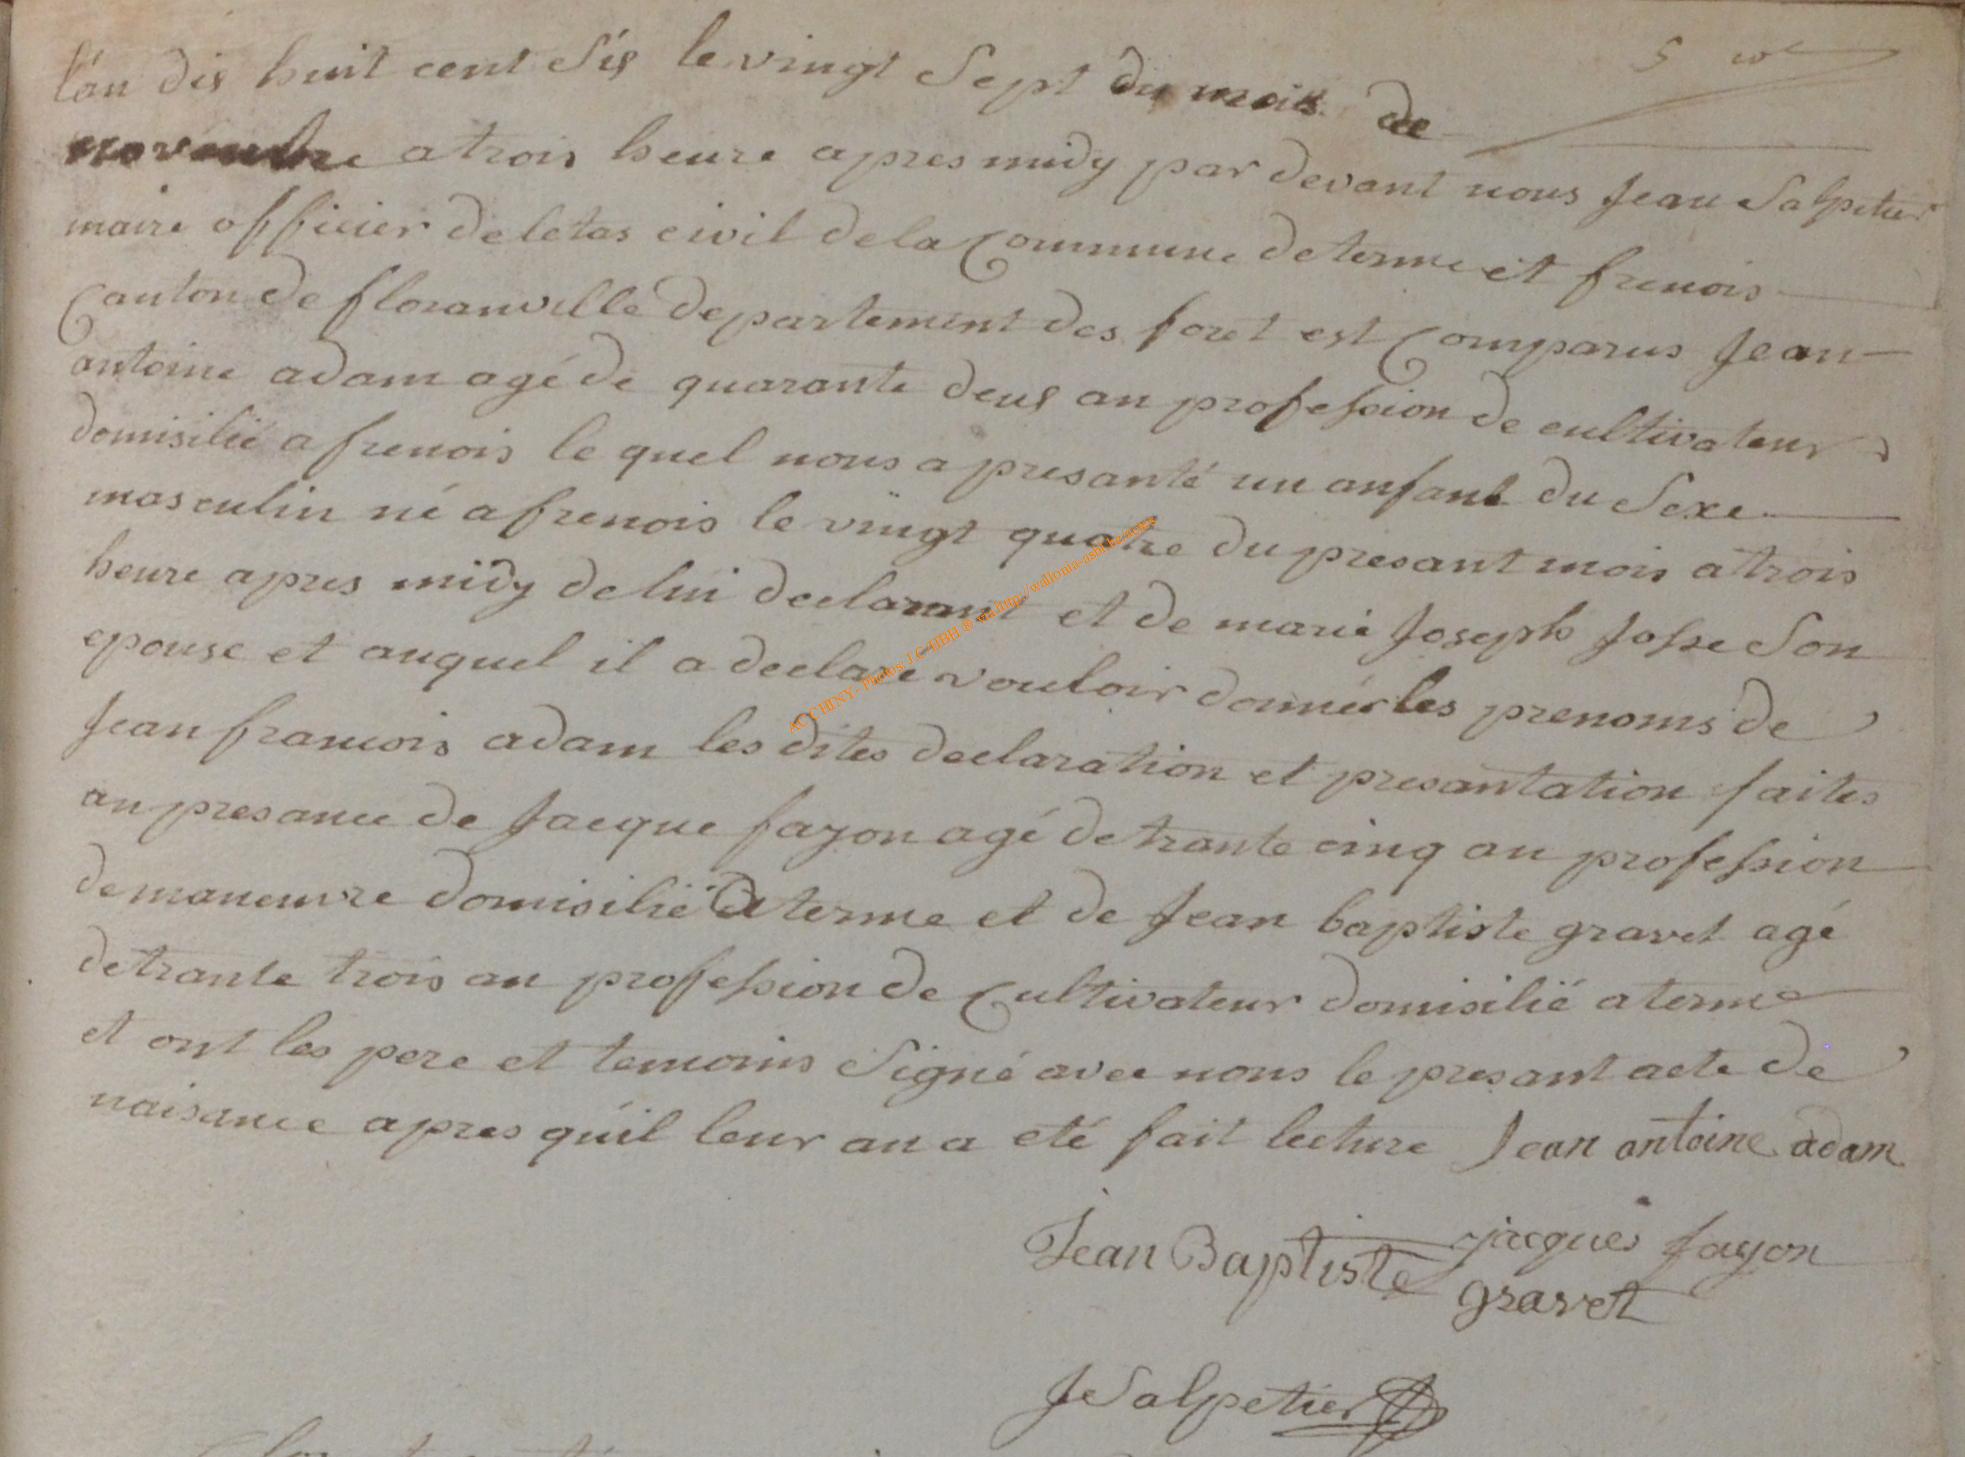 l'an dis huit cent Sis le vingt Sept du mois de
novembre a trois heure apres midy par devant nous Jean Salpetier
maire officier de letas civil de la Commune de terme et frenois
Canton de floranville departement des foret est Comparus Jean
antoine adam agé de quarante deus an profession de cultivateur
domisilié a frenois le quel nous a presanté un anfant du Sexe
masculin né a frenois le vingt quatre du presant mois a trois
heure apres midy de lui declarant et de marie Joseph Josse Son
epouse et auquel il a declare vouloir donner les prenoms de
Jean francois adam les dites declaration et presantation faites
an presance de Jacque fayon agé de trante cinq an profession
de maneuvre domisilié a terme et de Jean baptiste gravet agé
de trante trois an profession de Cultivateur domisilié a terme
et ont les pere et temoins Signé avec nous le presant acte de
naisance apres qu'il leur an a eté fait lecture Jean antoine adam
jacques fayon
Jean Baptiste gravet
J Salpetier